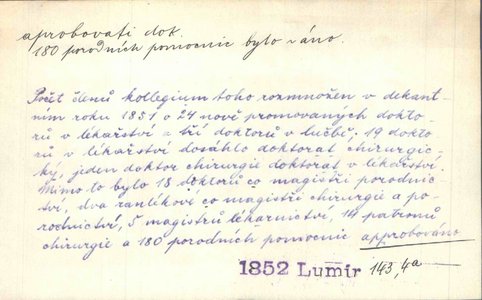 aprobovati dok.
180 porodních pomocnic bylo -áno.
Počet členů kollegium toho rozmnožen v dekant-
ním roku 1851 o 24 nově promovaných dokto-
rů v lékařství a tří doktorů v lučbě; 19 dokto
rů v lékařství dosáhlo doktorát chirurgic-
ký, jeden doktor chirurgie doktorát v lékařství.
Mimo to bylo 18 doktorů co magistři porodnic-
tví, dva ranlékové co magistři chirurgie a po-
rodnictví, 5 magistrů lékárnictví, 14 patronů
chirurgie a 180 porodních pomocnic approbováno
1852 Lumír 143,4a